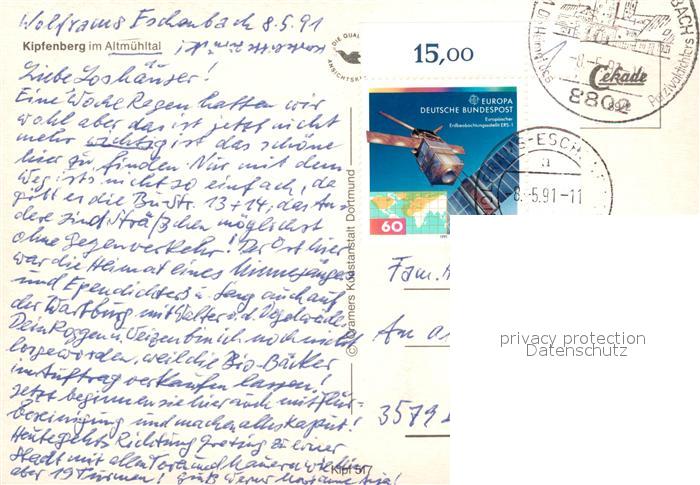 Wolframs Eschenbach 8.5.91
Kipfenberg im Altmühltal
Liebe Loshäuser!
Eine Woche Regen hatten wir
wohl aber das ist jetzt nicht
mehr wichtig ist das schöne
hier zu finden. Nur mit dem
Weg ists nicht so einfach, da
gibt es die Bu-Str. 13+14, das An-
dere sind Sträßchen möglichst
ohne Gegenverkehr! Der Ort hier
war die Heimat eines Minnesängers
und Ependichters u. sang auch auf
der Wartburg mit Walter v.d. Vogelweide
Dein Roggen u. Weizen bin ich noch nicht
losgeworden, weil die Bio-Bäcker
im Auftrag verkaufen lassen!
Jetzt beginnen sie hier auch mit Flur-
bereinigung und machen alles kaputt!
Heute gehts Richtung Greding zu einer
Stadt mit allen Toren und Mauern wie hier
aber 19 Türmen! Gruß Werner
Kipf 517
© Krämers Kunstanstalt Dortmund
DIE QUAL
ANSICHTSKA
15,00
EUROPA
DEUTSCHE BUNDESPOST
Europäischer
Erdbeobachtungssatellit ERS-1
60
1991
8802
Cekade
892
BACH
Parzivaldichters
-ESCH
a
8.-5.91-11
Fam.
Am
3579
privacy protection
Datenschutz